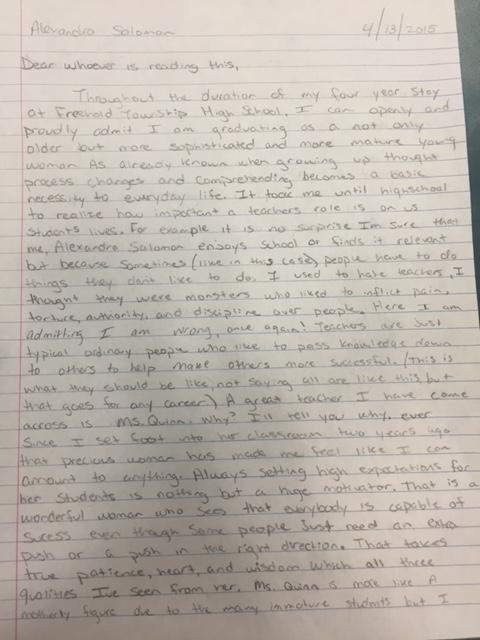 Alexandra Salomon 4/13/2015
Dear whoever is reading this,
Throughout the duration of my four year stay
at Freehold Township High School, I can openly and
proudly admit I am graduating as a not only
older but more sophisticated and more mature young
woman. As already known when growing up thought
process changes and comprehending becomes a basic
necessity to everyday life. It took me until highschool
to realize how important a teachers role is on us
students lives. For example it is no surprise I'm sure that
me, Alexandra Salomon enjoys school or finds it relevant
but because sometimes (like in this case) people have to do
things they don't like to do. I used to hate teachers, I
thought they were monsters who liked to inflict pain,
torture, authority, and discipline over people. Here I am
admitting I am wrong, once again! Teachers are just
typical ordinary people who like to pass knowledge down
to others to help make others more successful. (This is
what they should be like, not saying all are like this, but
that goes for any career) A great teacher I have come
across is Ms. Quinn. Why? I'll tell you why, ever
since I set foot into her classroom two years ago
that precious woman has made me feel like I can
amount to anything. Always setting high expectations for
her students is nothing but a huge motivator. That is a
wonderful woman who sees that everybody is capable of
sucess even though some people just need an extra
push or a push in the right direction. That takes
true patience, heart, and wisdom which all three
qualities I've seen from her. Ms. Quinn is more like a
motherly figure due to the many immature students but I